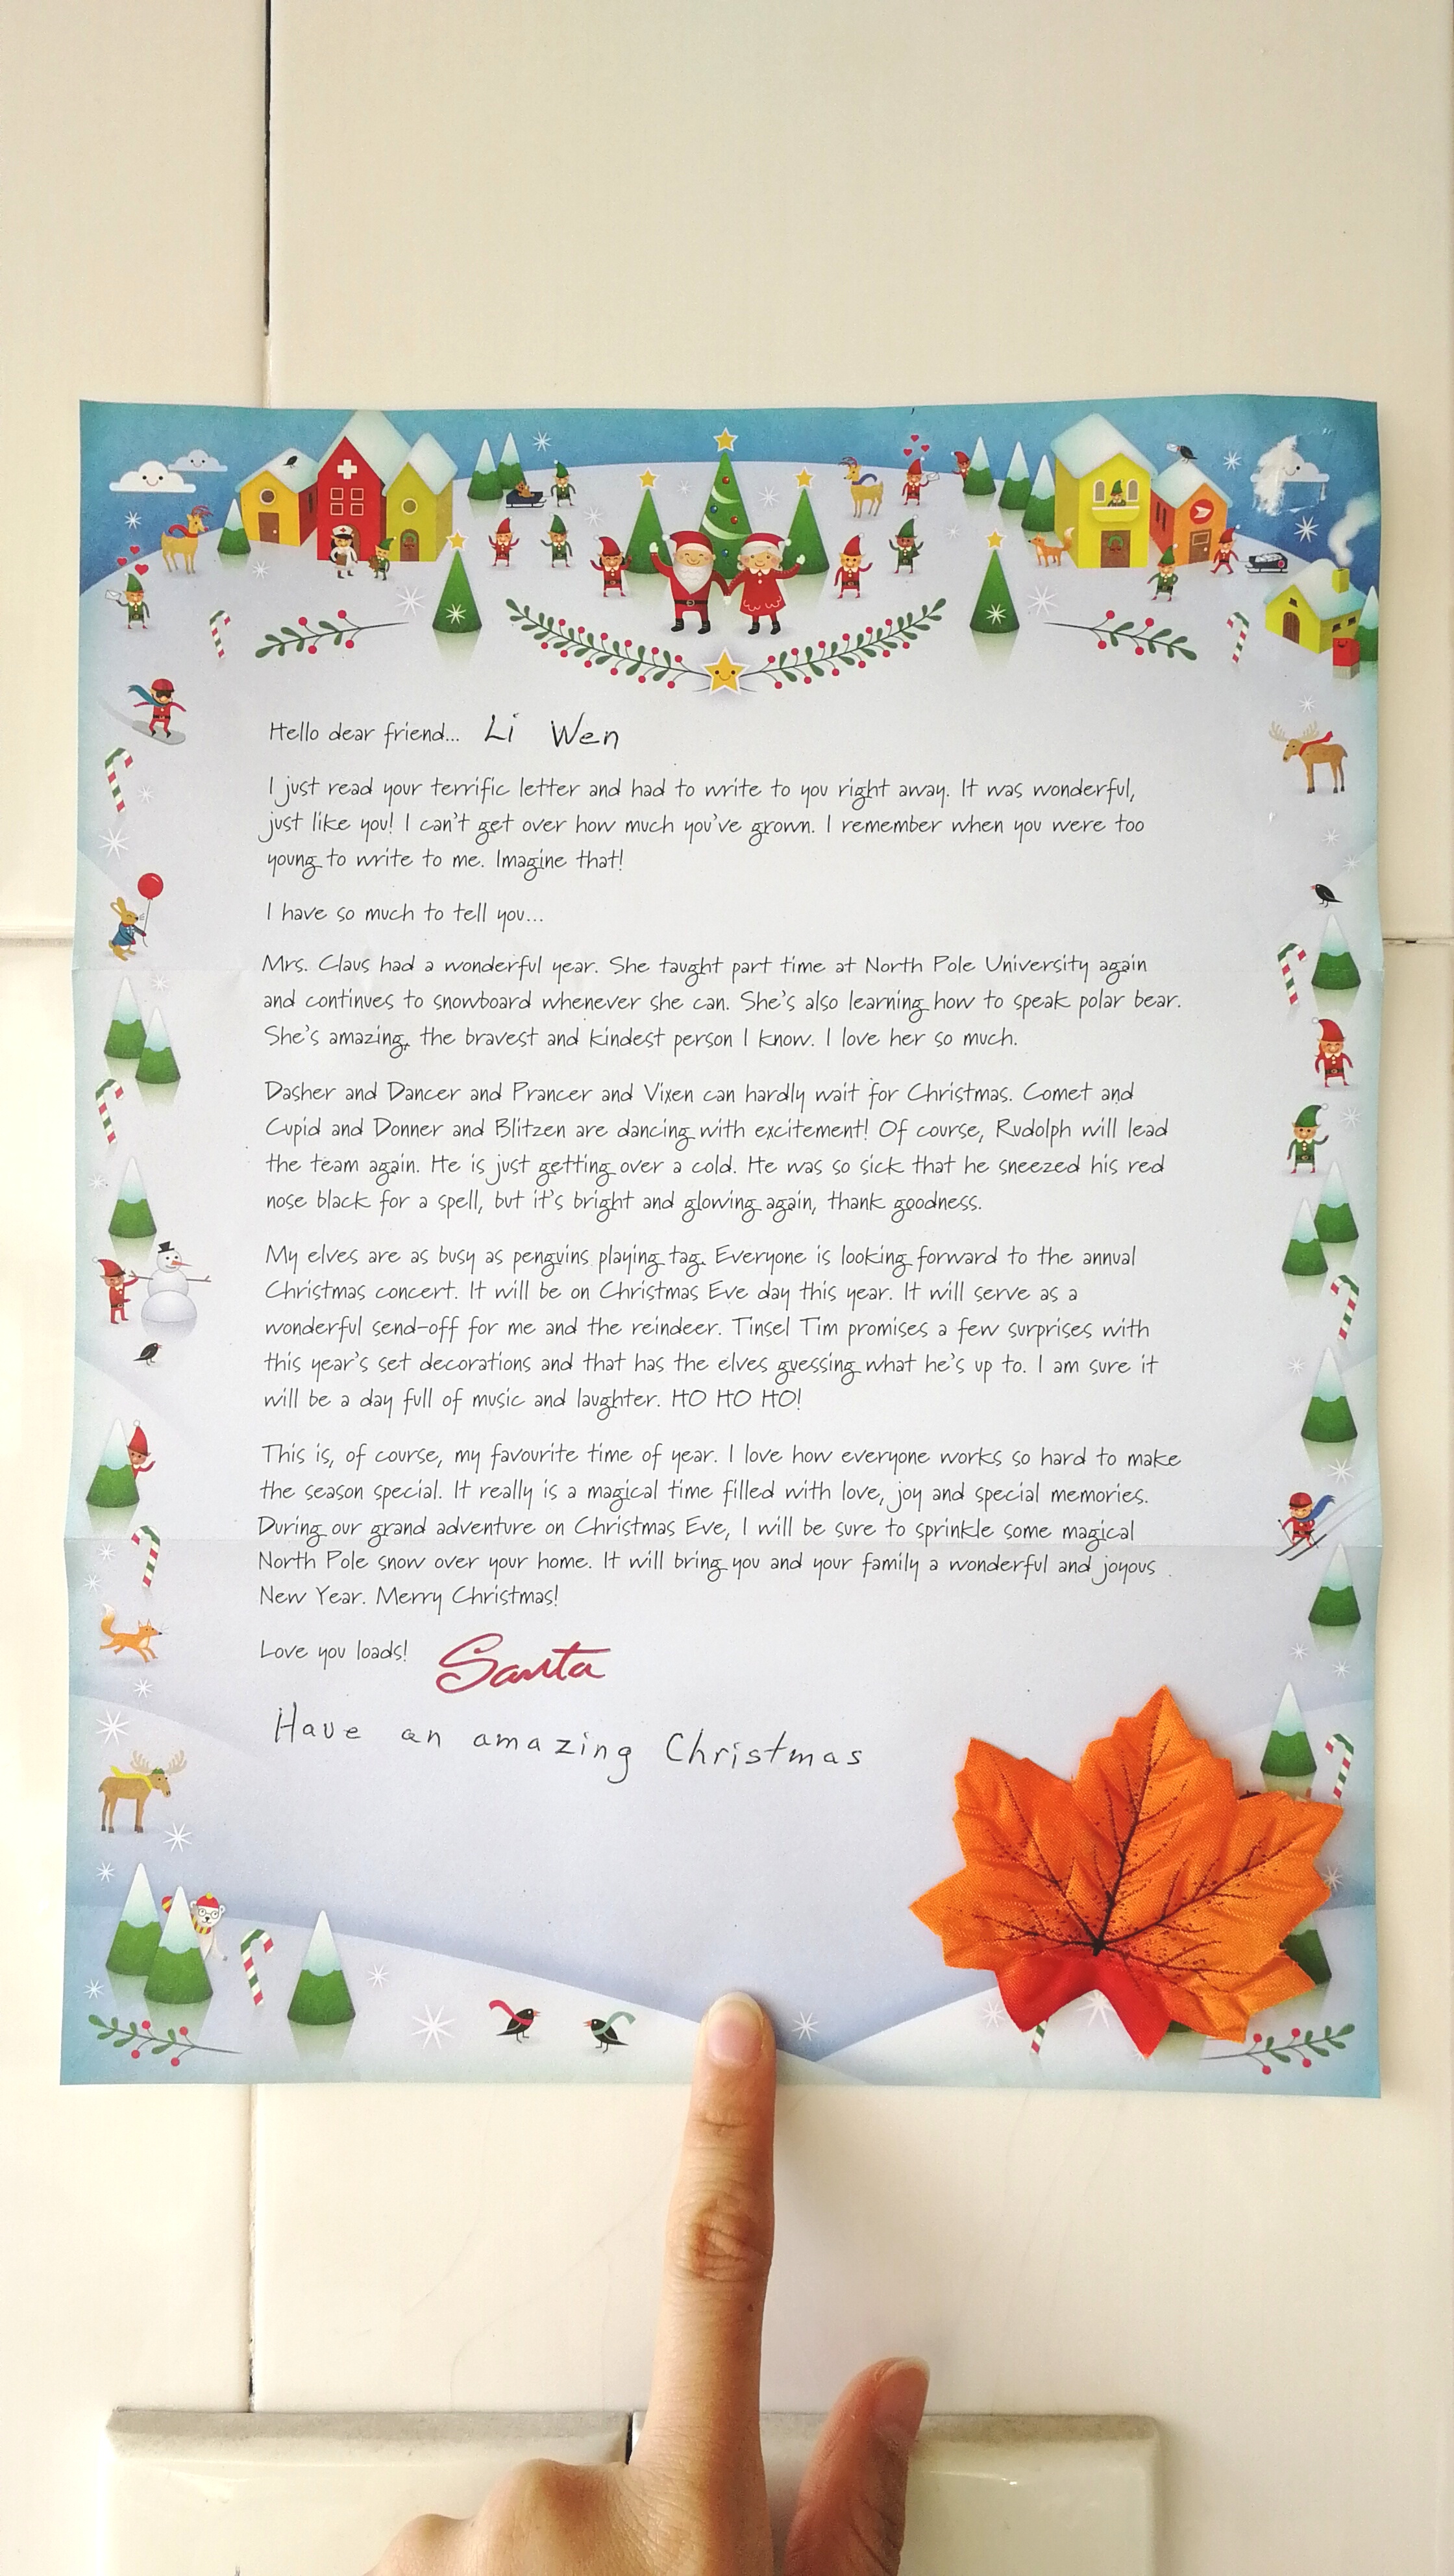 Hello dear friend... Li Wen
I just read your terrific letter and had to write to you right away. It was wonderful,
just like you! I can't get over how much you've grown. I remember when you were too
young to write to me. Imagine that!
I have so much to tell you...
Mrs. Claus had a wonderful year. She taught part time at North Pole University again
and continues to snowboard whenever she can. She's also learning how to speak polar bear.
She's amazing, the bravest and kindest person I know. I love her so much.
Dasher and Dancer and Prancer and Vixen can hardly wait for Christmas. Comet and
Cupid and Donner and Blitzen are dancing with excitement! Of course, Rudolph will lead
the team again. He is just getting over a cold. He was so sick that he sneezed his red
nose black for a spell, but it's bright and glowing again, thank goodness.
My elves are as busy as penguins playing tag. Everyone is looking forward to the annual
Christmas concert. It will be on Christmas Eve day this year. It will serve as a
wonderful send-off for me and the reindeer. Tinsel Tim promises a few surprises with
this year's set decorations and that has the elves guessing what he's up to. I am sure it
will be a day full of music and laughter. HO HO HO!
This is, of course, my favourite time of year. I love how everyone works so hard to make
the season special. It really is a magical time filled with love, joy and special memories.
During our grand adventure on Christmas Eve, I will be sure to sprinkle some magical
North Pole snow over your home. It will bring you and your family a wonderful and joyous
New Year. Merry Christmas!
Love you loads! Santa
Have an amazing Christmas